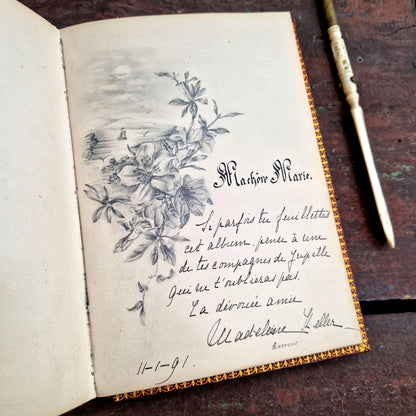 Ma chère Marie.
Si parfois tu feuillettes
cet album, pense à une
de tes compagnes de Jupille
qui ne t'oubliera pas.
Ta dévouée amie
Madeleine Keller
11-1-91.